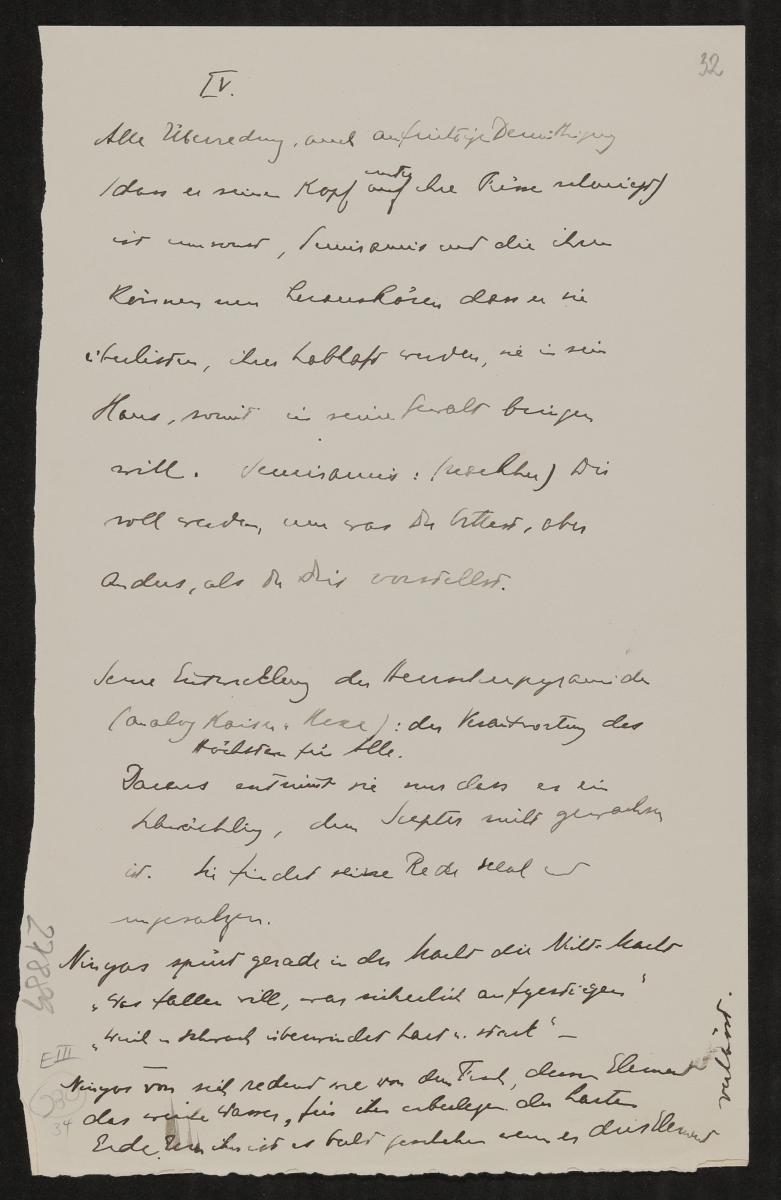 32
IV.
Alle Überredung, auch aufrichtige Demüthigung
(dass er seinen Kopf unter auf ihre Füsse schmiegt)
ist umsonst, Semiramis und die ihren
können nur heraushören dass er sie
überlisten, ihrer habhaft werden, sie in sein
Haus, somit in seine Gewalt bringen
will. Semiramis: Dir
soll werden, um was Du bittest, aber
anders, als Du Dirs vorstellst.
Seine Entwicklung der Herrscherpyramide
(analog Kaiser u. Hexe): der Verantwortung des
Höchsten für Alle.
Daraus entnimmt sie nur dass er ein
Schwächling, dem Scepter nicht gewachsen
ist. Sie findet seine Rede schal und
ungesalzen.
Ninyas spürt gerade in der Macht die Nicht-Macht
„Was fallen will, muss sicherlich aufgestiegen"
„Weich u schwach überwindet hart u. stark" —
Ninyas von sich redend wie von dem Fisch, dessen Element
das weiche Wasser, für ihn überlegen der harten
Erde. Um ihn ist es bald geschehen wenn er dies Element
verlässt.
27889
E III
34